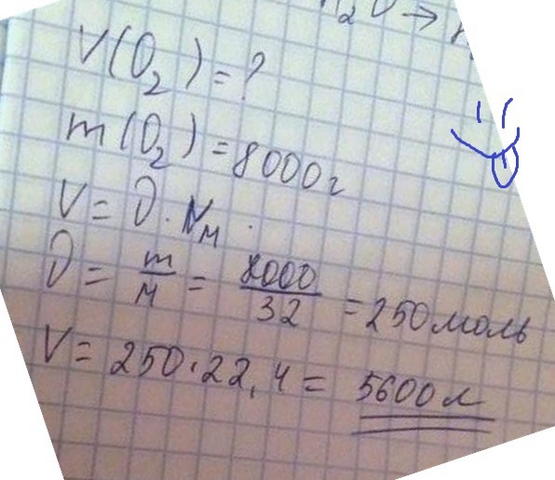 V(O₂) = ?
m(O₂) = 8000г
V = ν · Vм
ν = m/M = 8000/32 = 250 моль
V = 250 · 22,4 = 5600 л